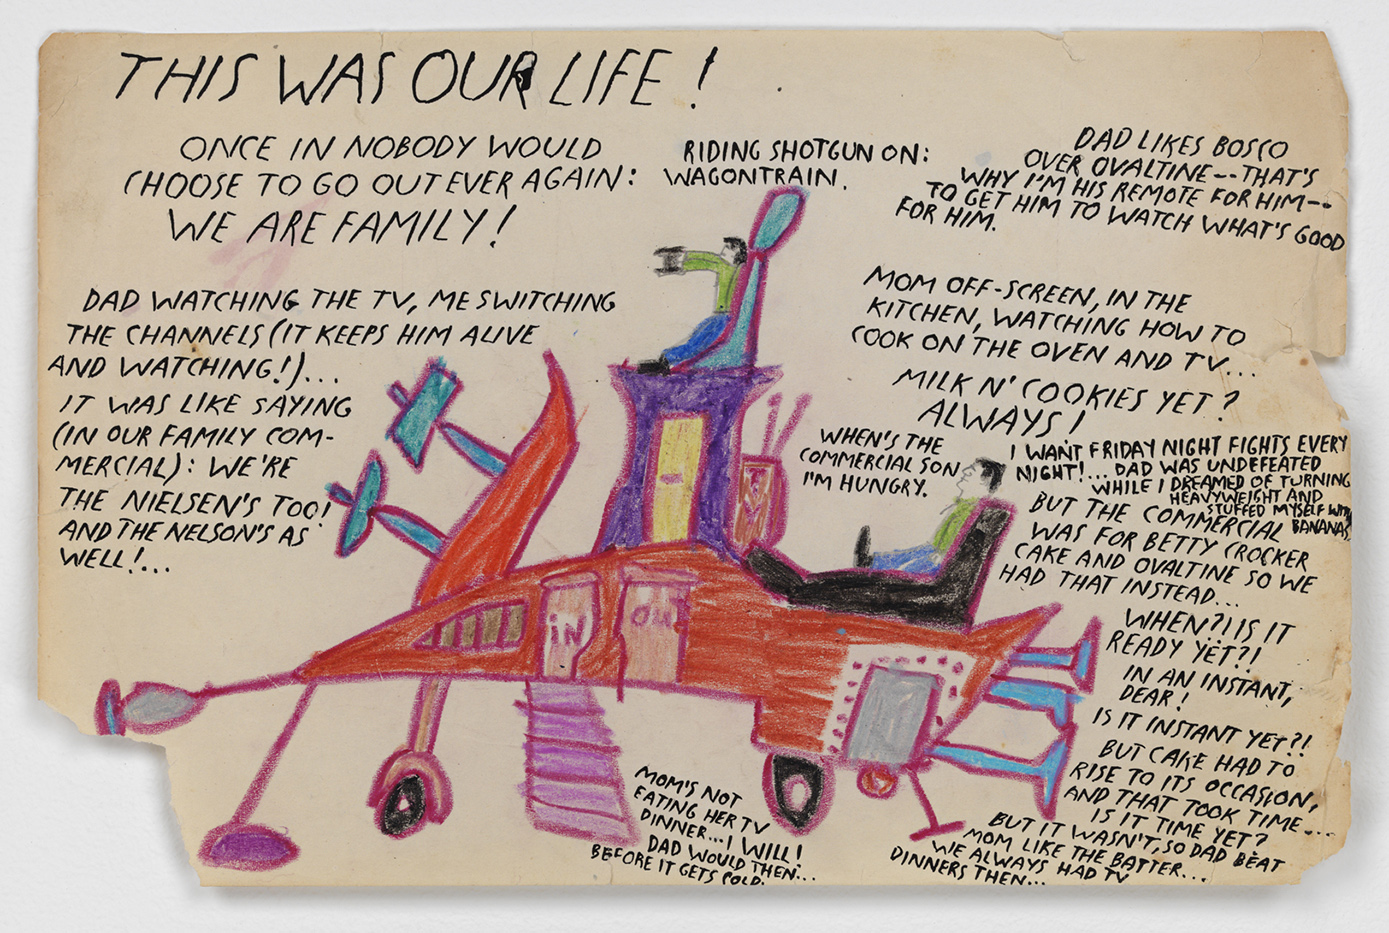 THIS WAS OUR LIFE!
ONCE IN NOBODY WOULD
CHOOSE TO GO OUT EVER AGAIN:
WE ARE FAMILY!
RIDING SHOTGUN ON:
WAGONTRAIN.
DAD LIKES BOSCO
OVER OVALTINE--THAT'S
WHY I'M HIS REMOTE FOR HIM--
TO GET HIM TO WATCH WHAT'S GOOD
FOR HIM.
DAD WATCHING THE TV, ME SWITCHING
THE CHANNELS (IT KEEPS HIM ALIVE
AND WATCHING!)...
IT WAS LIKE SAYING
(IN OUR FAMILY COM-
MERCIAL): WE'RE
THE NIELSEN'S TOO!
AND THE NELSON'S AS
WELL!...
MOM OFF-SCREEN, IN THE
KITCHEN, WATCHING HOW TO
COOK ON THE OVEN AND TV...
MILK N' COOKIES YET?
ALWAYS!
WHEN'S THE
COMMERCIAL SON
I'M HUNGRY.
I WANT FRIDAY NIGHT FIGHTS EVERY
NIGHT!...DAD WAS UNDEFEATED
WHILE I DREAMED OF TURNING
HEAVYWEIGHT AND
STUFFED MYSELF WITH
BANANAS.
BUT THE COMMERCIAL
WAS FOR BETTY CROCKER
CAKE AND OVALTINE SO WE
HAD THAT INSTEAD...
WHEN?! IS IT
READY YET?!
IN AN INSTANT,
DEAR!
IS IT INSTANT YET?!
BUT CAKE HAD TO
RISE TO ITS OCCASION,
AND THAT TOOK TIME...
IS IT TIME YET?
BUT IT WASN'T, SO DAD BEAT
MOM LIKE THE BATTER...
WE ALWAYS HAD TV
DINNERS THEN...
IN
OUT
MOM'S NOT
EATING HER TV
DINNER...I WILL!
DAD WOULD THEN...
BEFORE IT GETS COLD.